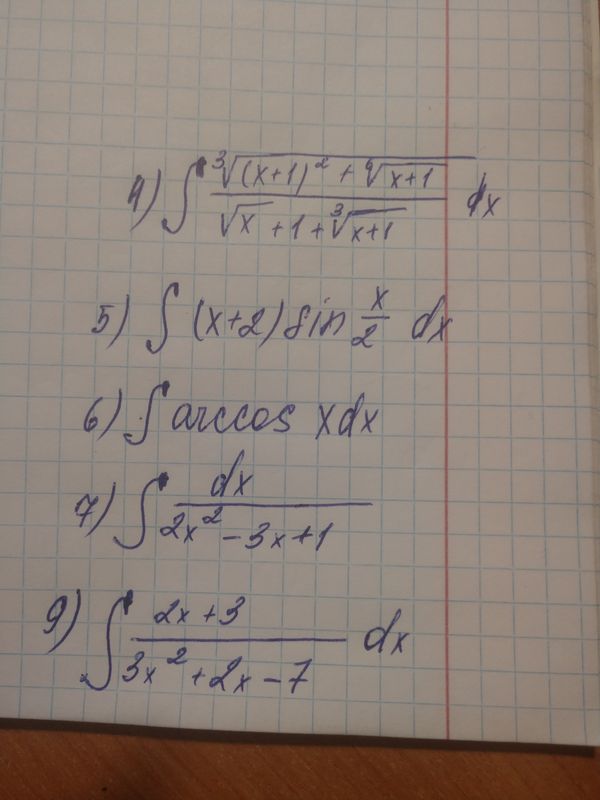 4) ∫ (∛((x+1)² + ⁶√(x+1))) / (√x + 1 + ∛(x+1)) dx
5) ∫ (x+2) sin x/2 dx
6) ∫ arccos x dx
7) ∫ dx / (2x² - 3x + 1)
9) ∫ (2x + 3) / (3x² + 2x - 7) dx